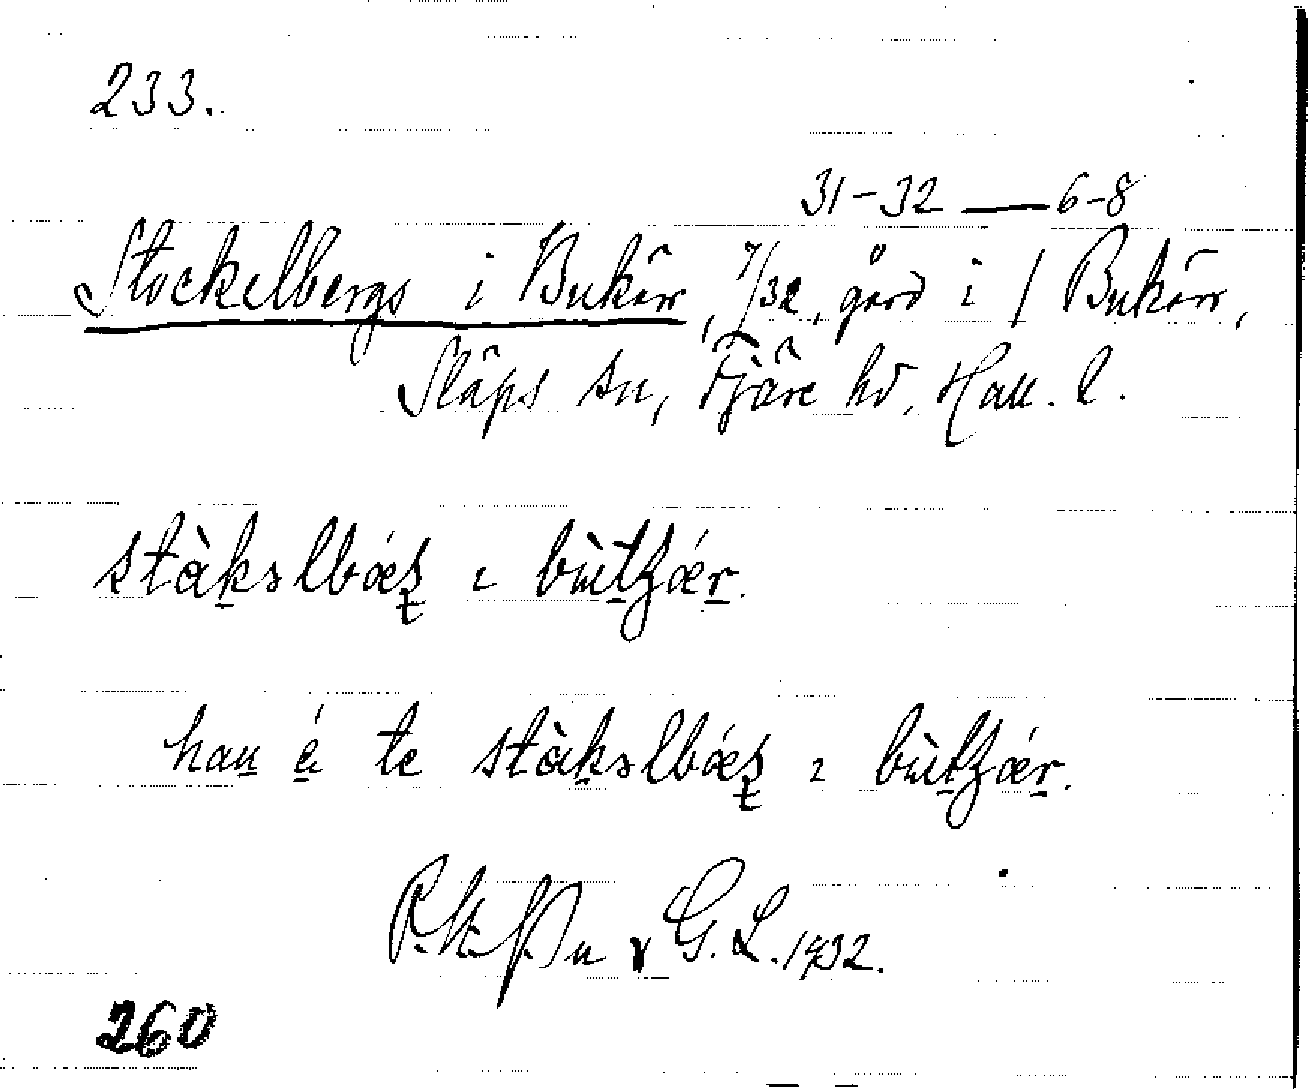 233.
31-32 — 6-8
Stockelbergs i Bukärr, 7/32, gård i 1 Bukärr,
Släps sn, Fjäre hd, Hall. l.
stàkəlbǽʂ ɩ bùtʒǽr.
han é te stàkəlbǽʂ ɩ bùtʒǽr.
G. L. 1932.
260